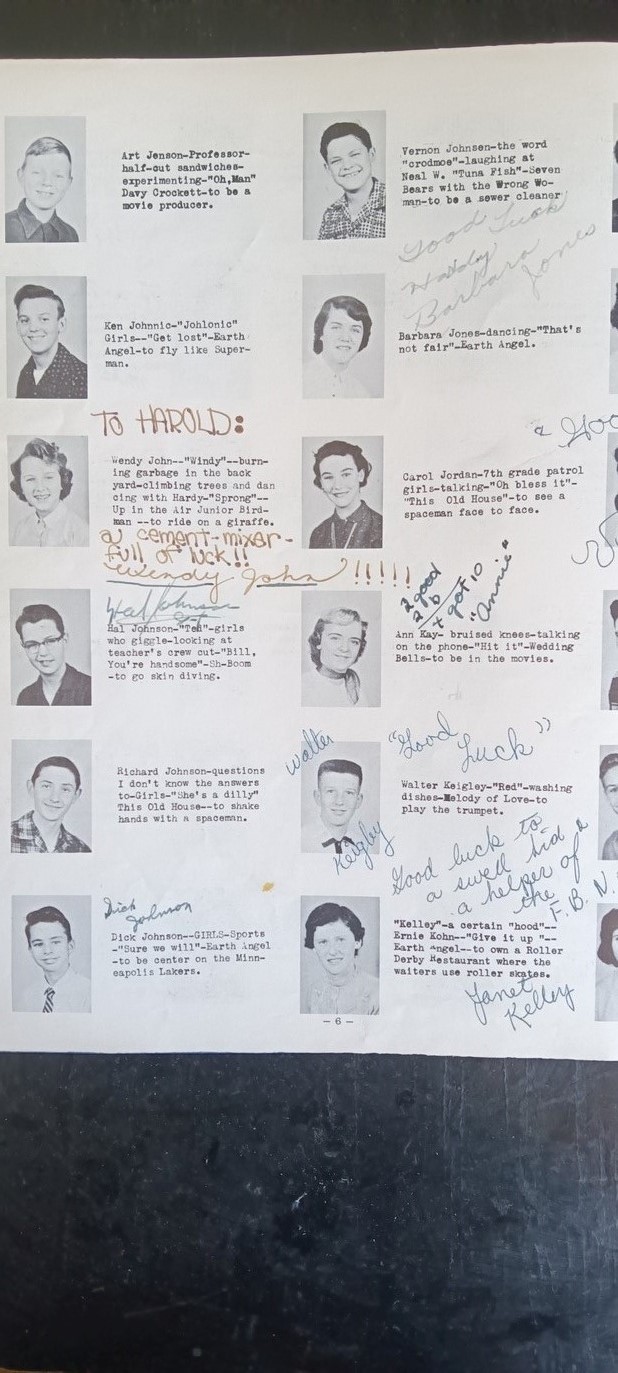 Art Jenson-Professor-
half-cut sandwiches-
experimenting-"Oh,Man"
Davy Crockett-to be a
movie producer.
Vernon Johnsen-the word
"crodmoe"-laughing at
Neal W. "Tuna Fish"-Seven
Bears with the Wrong Wo-
man-to be a sewer cleaner
Good Luck
Barbara
Jones
Ken Johnnic-"Johlonic"
Girls--"Get lost"-Earth
Angel-to fly like Super-
man.
Barbara Jones-dancing-"That's
not fair"-Earth Angel.
TO HAROLD:
Wendy John--"Windy"--burn-
ing garbage in the back
yard-climbing trees and dan
cing with Hardy-"Sprong"--
Up in the Air Junior Bird-
man --to ride on a giraffe.
a cement-mixer-
full of luck!!
Wendy John!!!!!
Carol Jordan-7th grade patrol
girls-talking-"Oh bless it"-
"This Old House"-to see a
spaceman face to face.
Hal Johnson
Hal Johnson-"Ted"-girls
who giggle-looking at
teacher's crew cut-"Bill,
You're handsome"-Sh-Boom
-to go skin diving.
2 good
2 b
4 got 10
"Annie"
Ann Kay- bruised knees-talking
on the phone-"Hit it"-Wedding
Bells-to be in the movies.
Richard Johnson-questions
I don't know the answers
to-Girls-"She's a dilly"
This Old House--to shake
hands with a spaceman.
Walter
Keigley
"Good
Luck"
Walter Keigley-"Red"-washing
dishes-Melody of Love-to
play the trumpet.
Dick
Johnson
Dick Johnson--GIRLS-Sports
-"Sure we will"-Earth Angel
-to be center on the Minn-
eapolis Lakers.
Good luck to
a swell kid &
a helper of
the F.B.N.
"Kelley"-a certain "hood"--
Ernie Kohn--"Give it up "--
Earth Angel--to own a Roller
Derby Restaurant where the
waiters use roller skates.
Janet
Kelley
- 6 -